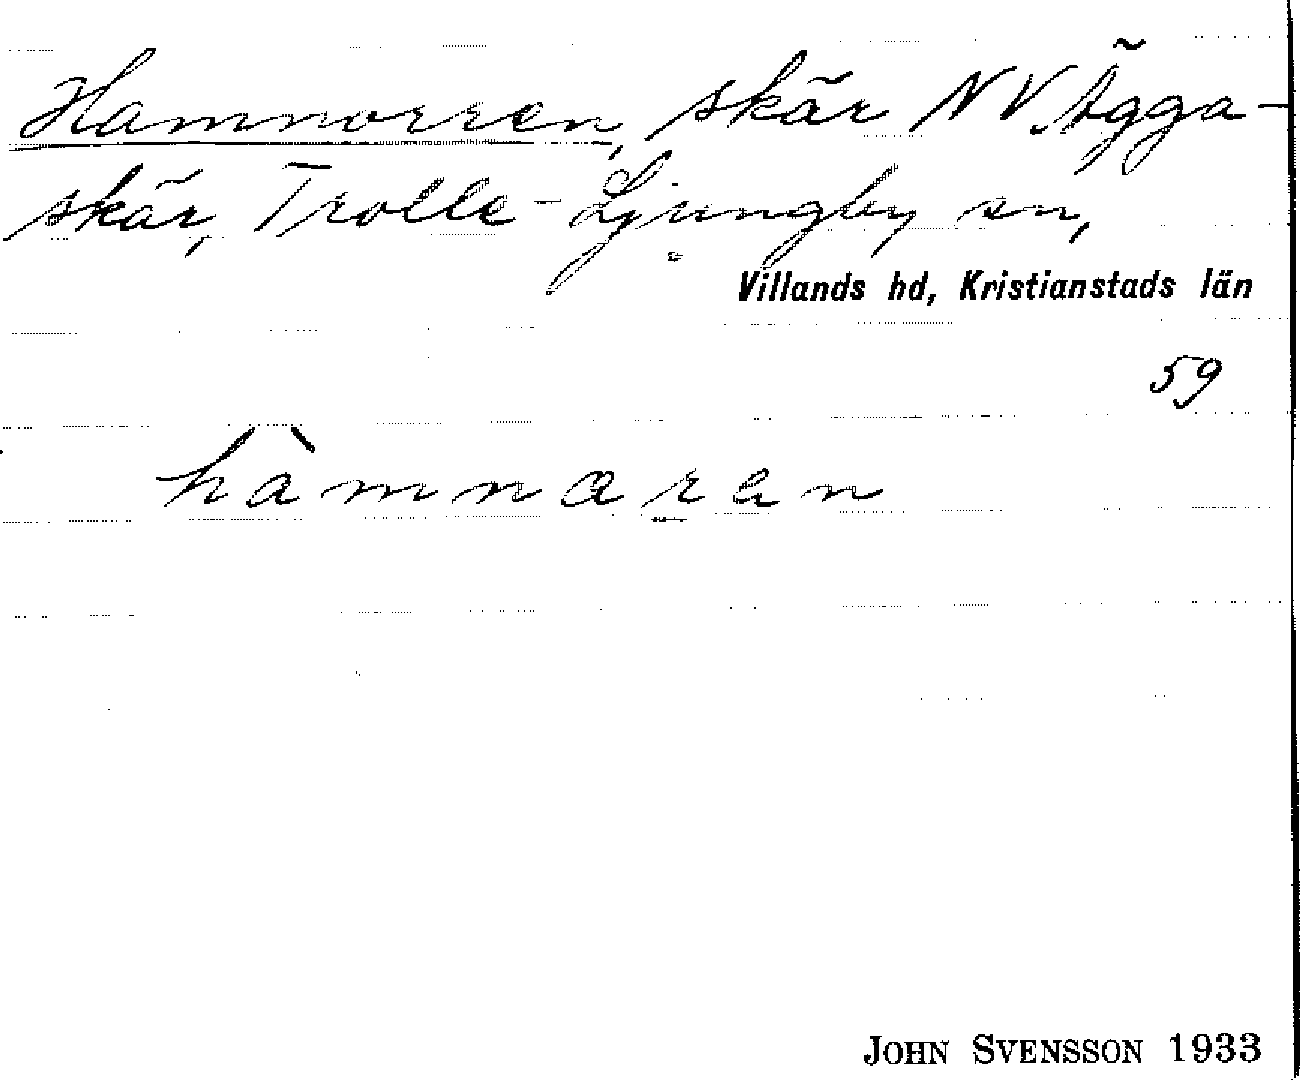 Hamnorren, skär NV Ägga-
skär, Trolle-Ljungby sn,
Villands hd, Kristianstads län
59
hàmnaren
JOHN SVENSSON 1933